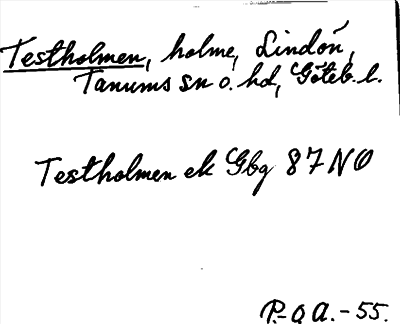 Testholmen, holme, Lindön,
Tanums sn o. hd, Göteb. l.
Testholmen ek Gbg 87 NO
P.-O A. - 55.